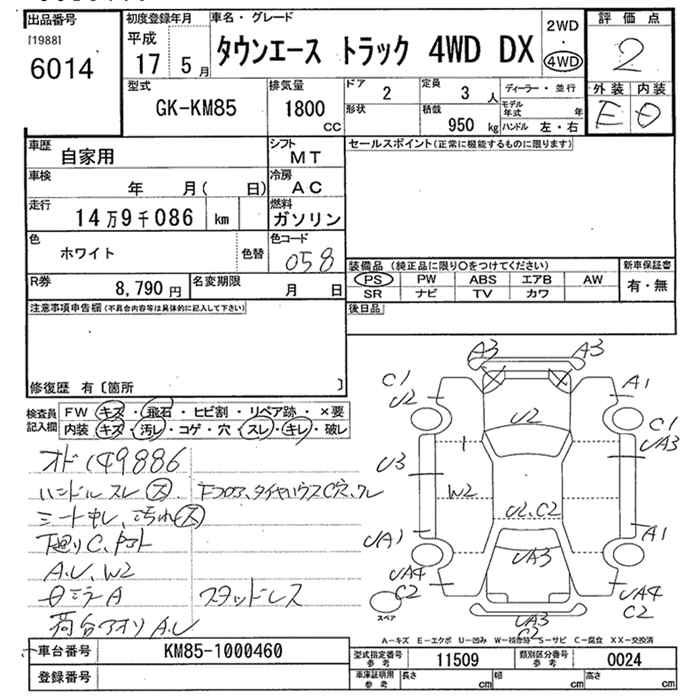 出品番号
[1988]
6014
初度登録年月
平成
17 5月
車名・グレード
タウンエース トラック 4WD DX
2WD
・
4WD
評価点
2
外装 内装
E D
型式
GK-KM85
排気量
1800
CC
ドア 2
形状
定員 3 人
積載
950 kg
ディーラー・並行
モデル年式 年
ハンドル 左・右
車歴 自家用
シフト
MT
車検 年 月( 日)
冷房
AC
走行 14万9千086 km
燃料
ガソリン
色 ホワイト 色替
色コード
058
R券 8,790円
名変期限 月 日
セールスポイント(正常に機能するものに限ります)
装備品(純正品に限り○をつけてください)
PS PW ABS エアB AW
SR ナビ TV カワ
新車保証書
有・無
後日品
注意事項申告欄(不具合内容等は具体的に記入して下さい)
修復歴 有〔箇所 〕
検査員記入欄
FW キズ・飛石・ヒビ割・リペア跡・×要
内装 キズ・汚レ・コゲ・穴・スレ・キレ・破レ
オド149886
ハンドルスレ(大)、下フロア、タイヤハウスC穴、ワレ
シートキレ、汚れ(大)
下廻りC、
A.U、W2
ミラーA スタッドレス
荷台アオリA.U
A3 A3
C1 U2
A1
C1
UA3
U2
U3
W2
U2、C2
UA1
A1
UA3
UA4
C2
UA4
C2
UA3
C2
スペア
A-キズ E-エクボ U-凹み W-補修跡 S-サビ C-腐食 XX-交換済
車台番号 KM85-1000460
登録番号
型式指定番号 参考 11509
類別区分番号 参考 0024
車庫証明用 参考 長さ cm 幅 cm 高さ cm